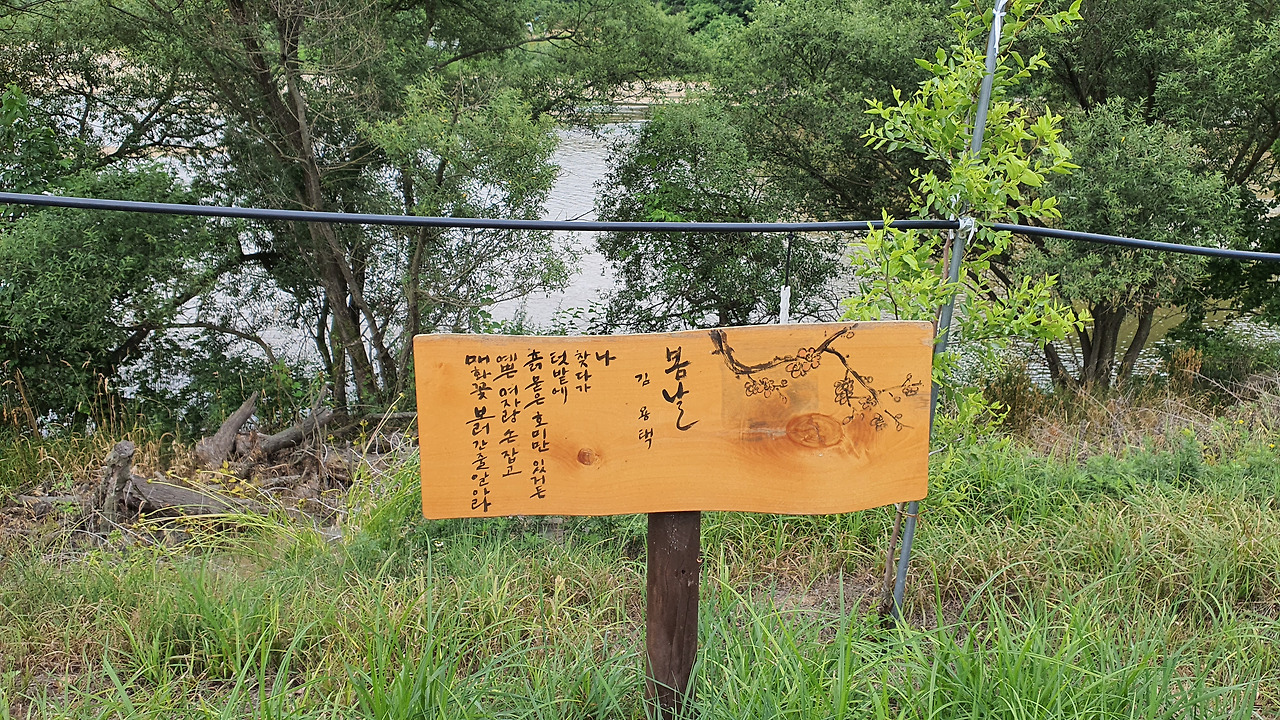 봄날
김용택
나
찾다가
텃밭에
흙 묻은 호미만 있거든
예쁜 여자랑 손 잡고
매화꽃 보러 간 줄 알아라